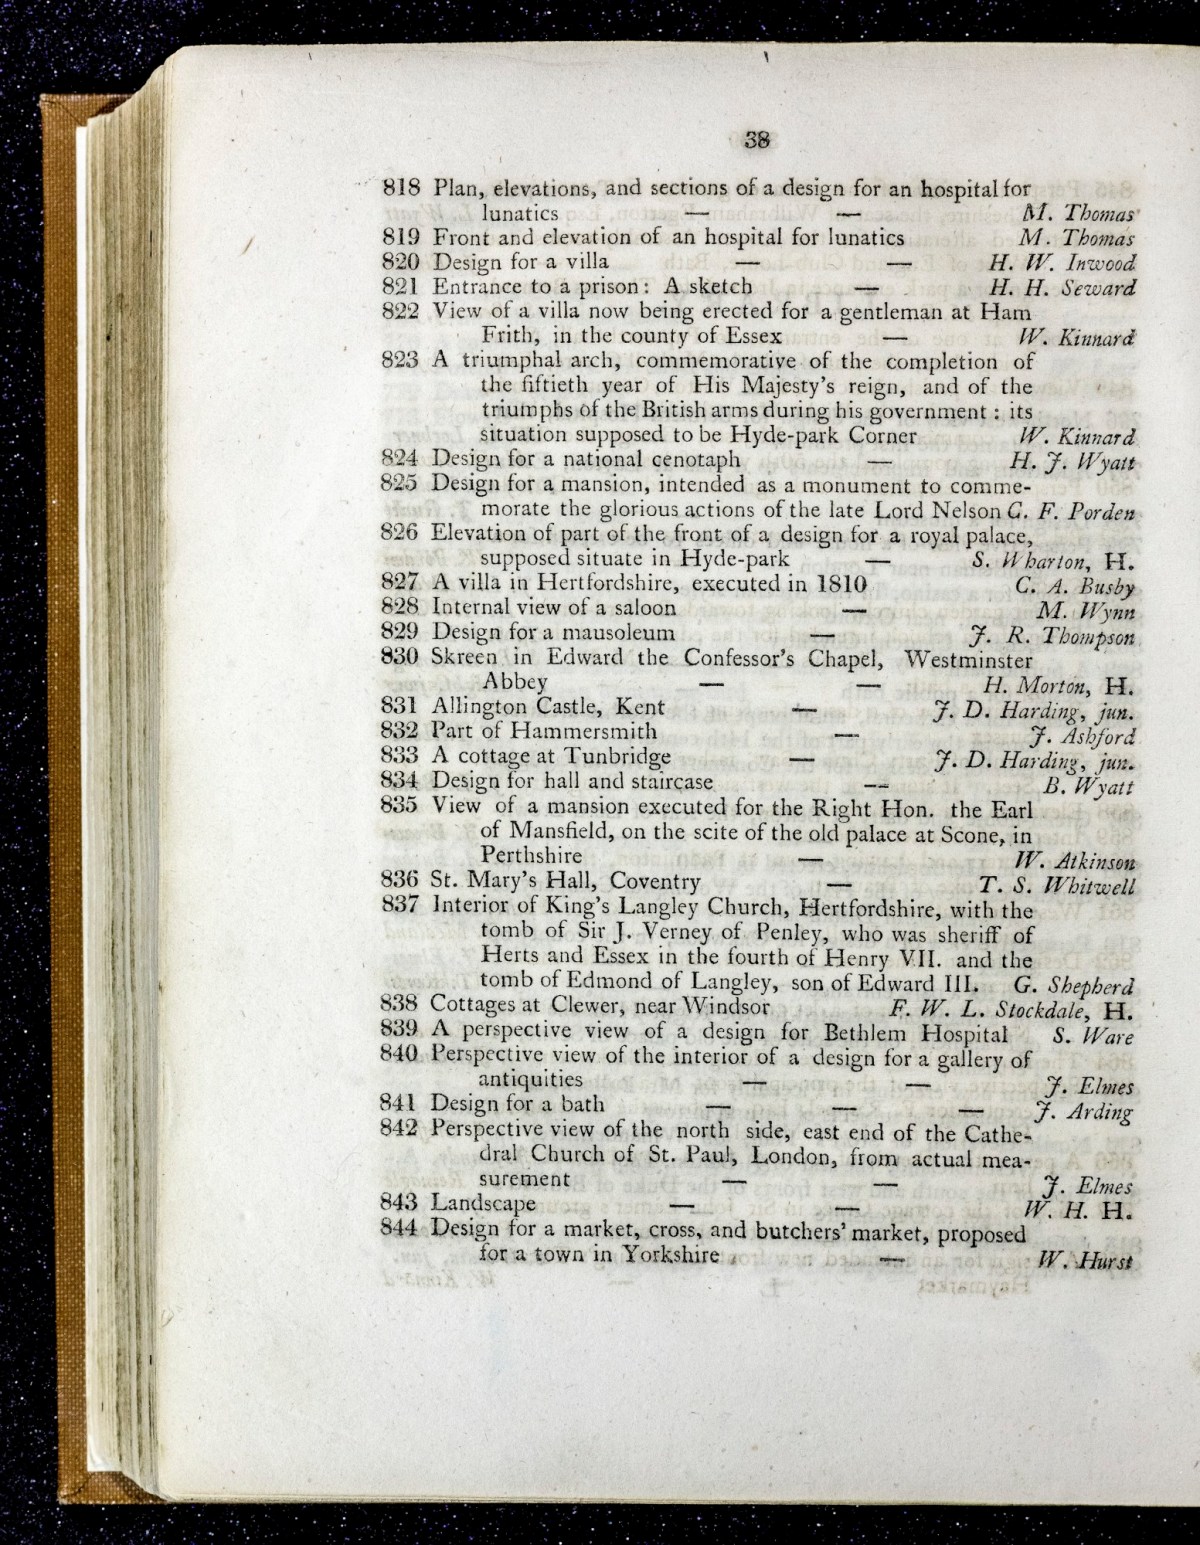 38
818 Plan, elevations, and sections of a design for an hospital for
lunatics — — M. Thomas
819 Front and elevation of an hospital for lunatics M. Thomas
820 Design for a villa — — H. W. Inwood
821 Entrance to a prison: A sketch — H. H. Seward
822 View of a villa now being erected for a gentleman at Ham
Frith, in the county of Essex — W. Kinnard
823 A triumphal arch, commemorative of the completion of
the fiftieth year of His Majesty's reign, and of the
triumphs of the British arms during his government: its
situation supposed to be Hyde-park Corner W. Kinnard
824 Design for a national cenotaph — H. J. Wyatt
825 Design for a mansion, intended as a monument to comme-
morate the glorious actions of the late Lord Nelson C. F. Porden
826 Elevation of part of the front of a design for a royal palace,
supposed situate in Hyde-park — S. Wharton, H.
827 A villa in Hertfordshire, executed in 1810 C. A. Busby
828 Internal view of a saloon — M. Wynn
829 Design for a mausoleum — J. R. Thompson
830 Skreen in Edward the Confessor's Chapel, Westminster
Abbey — — H. Morton, H.
831 Allington Castle, Kent — J. D. Harding, jun.
832 Part of Hammersmith — J. Ashford
833 A cottage at Tunbridge — J. D. Harding, jun.
834 Design for hall and staircase — B. Wyatt
835 View of a mansion executed for the Right Hon. the Earl
of Mansfield, on the scite of the old palace at Scone, in
Perthshire — W. Atkinson
836 St. Mary's Hall, Coventry — T. S. Whitwell
837 Interior of King's Langley Church, Hertfordshire, with the
tomb of Sir J. Verney of Penley, who was sheriff of
Herts and Essex in the fourth of Henry VII. and the
tomb of Edmond of Langley, son of Edward III. G. Shepherd
838 Cottages at Clewer, near Windsor F. W. L. Stockdale, H.
839 A perspective view of a design for Bethlem Hospital S. Ware
840 Perspective view of the interior of a design for a gallery of
antiquities — — J. Elmes
841 Design for a bath — — — J. Arding
842 Perspective view of the north side, east end of the Cathe-
dral Church of St. Paul, London, from actual mea-
surement — — J. Elmes
843 Landscape — — W. H. H.
844 Design for a market, cross, and butchers' market, proposed
for a town in Yorkshire — W. Hurst